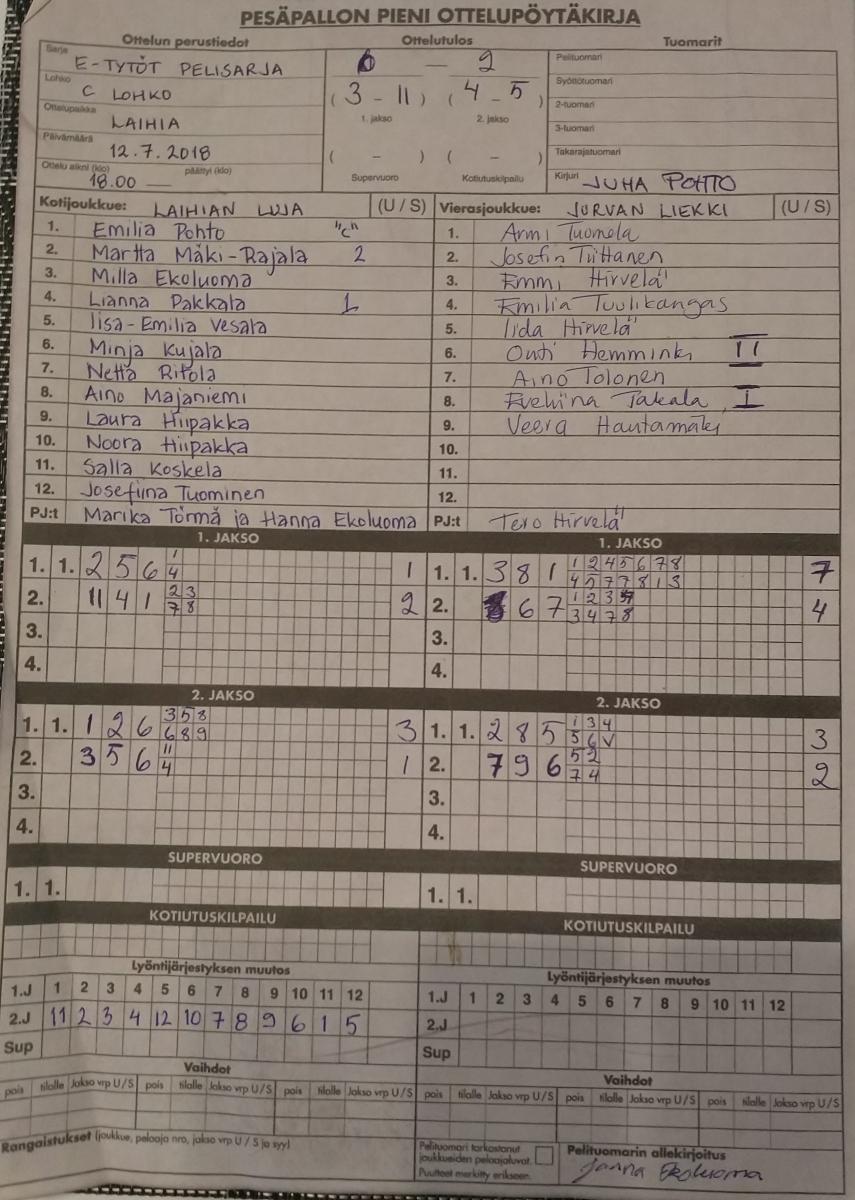 PESÄPALLON PIENI OTTELUPÖYTÄKIRJA
Ottelun perustiedot Ottelutulos Tuomarit
Sarja E-TYTÖT PELISARJA 0 — 2 Pelituomari
Lohko C LOHKO (3 - 11) (4 - 5) Syöttötuomari
1. jakso 2. jakso 2-tuomari
Ottelupaikka LAIHIA 3-tuomari
Päivämäärä 12.7.2018 ( - ) ( - ) Takarajatuomari
Ottelu alkoi (klo) 18.00 — päättyi (klo) Supervuoro Kotiutuskilpailu Kirjuri JUHA POHTO
Kotijoukkue: LAIHIAN LUJA (U / S) Vierasjoukkue: JURVAN LIEKKI (U / S)
1. Emilia Pohto "C" 1. Armi Tuomela
2. Martta Mäki-Rajala 2 2. Josefin Tiittanen
3. Milla Ekoluoma 3. Emmi Hirvelä
4. Lianna Pakkala 1 4. Emilia Tuulikangas
5. Iisa-Emilia Vesala 5. Iida Hirvelä
6. Minja Kujala 6. Outi Hemminki II
7. Netta Ritola 7. Aino Tolonen
8. Aino Majaniemi 8. Eveliina Takala I
9. Laura Hiipakka 9. Veera Hautamäki
10. Noora Hiipakka 10.
11. Salla Koskela 11.
12. Josefiina Tuominen 12.
PJ:t Marika Törmä ja Hanna Ekoluoma PJ:t Tero Hirvelä
1. JAKSO 1. JAKSO
1. 1. 2 5 6 1 1 1. 1. 3 8 1 1 2 4 5 6 7 8 7
4 4 5 7 7 8 1 3
2. 11 4 1 2 3 2 2. 6 7 1 2 3 4
7 8 3 4 7 8
3. 3.
4. 4.
2. JAKSO 2. JAKSO
1. 1. 1 2 6 3 5 8 3 1. 1. 2 8 5 1 3 4 3
6 8 9 5 6 V
2. 3 5 6 11 1 2. 7 9 6 5 2 2
4 7 4
3. 3.
4. 4.
SUPERVUORO SUPERVUORO
1. 1. 1. 1.
KOTIUTUSKILPAILU KOTIUTUSKILPAILU
Lyöntijärjestyksen muutos Lyöntijärjestyksen muutos
1.J 1 2 3 4 5 6 7 8 9 10 11 12 1.J 1 2 3 4 5 6 7 8 9 10 11 12
2.J 11 2 3 4 12 10 7 8 9 6 1 5 2.J
Sup Sup
Vaihdot Vaihdot
pois tilalle Jakso vrp U/S pois tilalle Jakso vrp U/S pois tilalle Jakso vrp U/S pois tilalle Jakso vrp U/S pois tilalle Jakso vrp U/S pois tilalle Jakso vrp U/S
Rangaistukset (joukkue, pelaaja nro, jakso vrp U / S ja syy) Pelituomari tarkastanut Pelituomarin allekirjoitus
joukkueiden pelaajaluvat.
Puutteet merkitty erikseen. Janna Ekoluoma